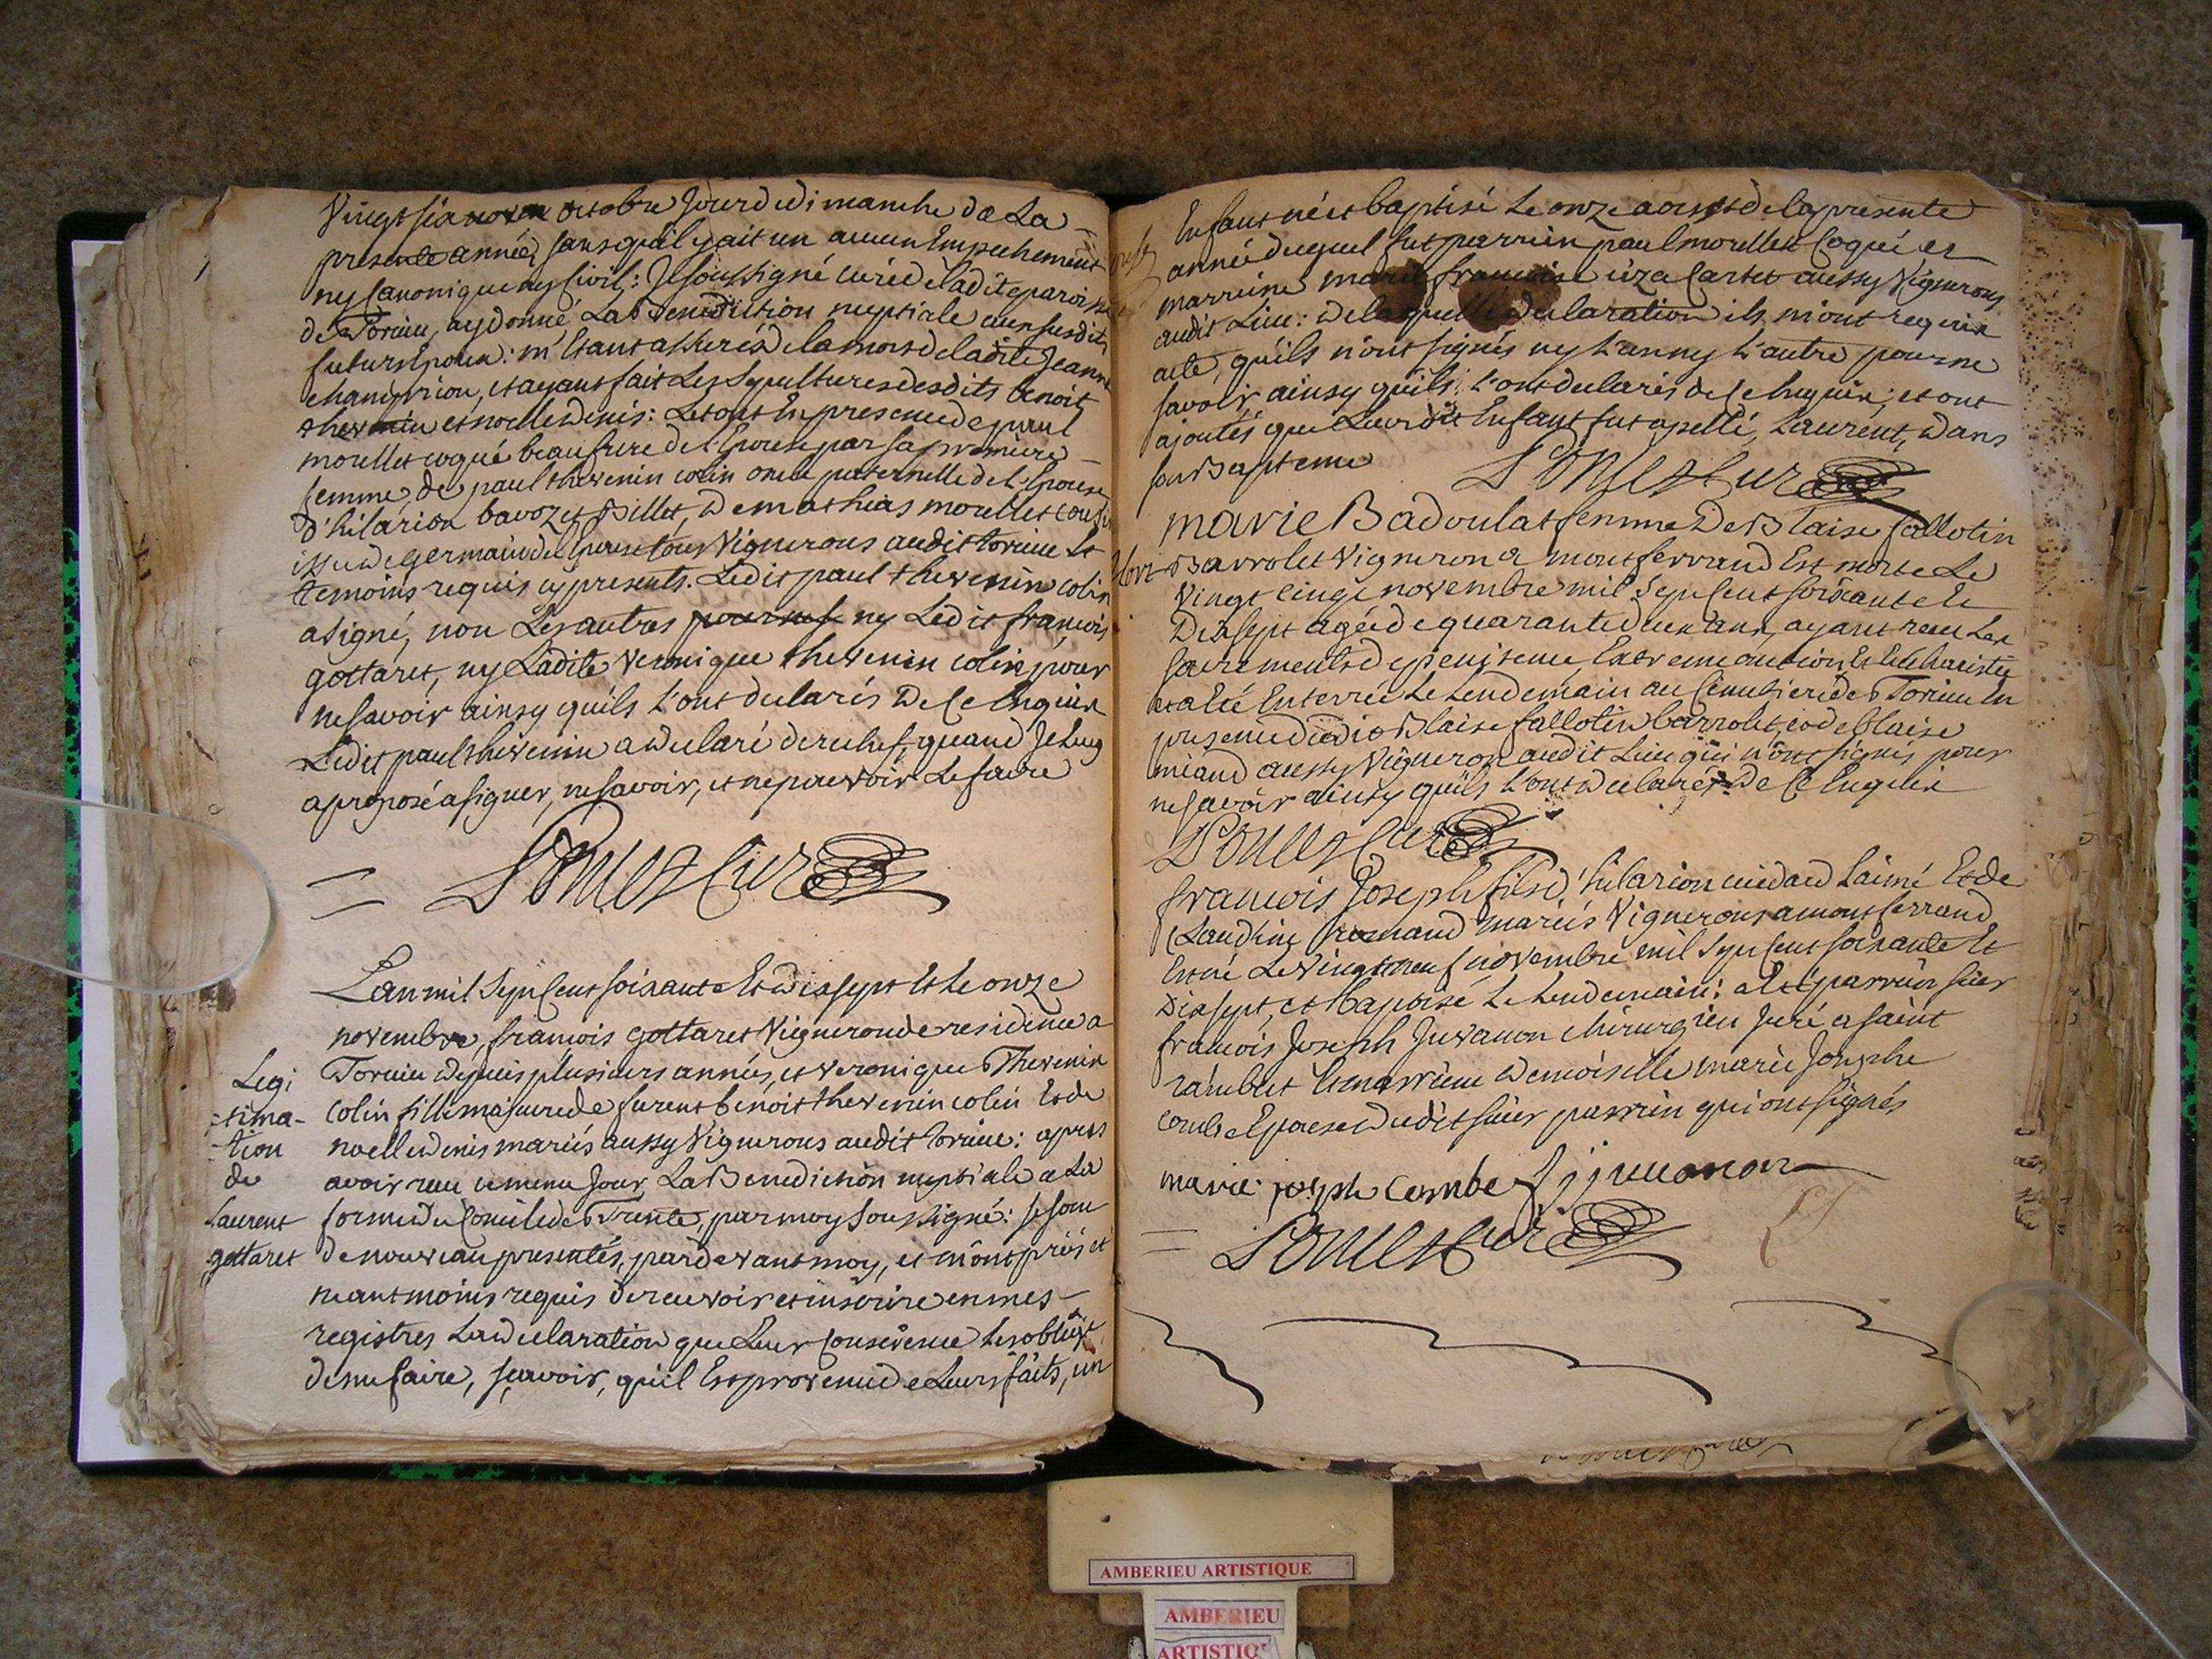 Vingt six octobre Jour de dimanche de La
presente année, sans qu'il y ait un aucun Empechement
ny Canonique ny Civil; Je soussigné curé de ladite paroisse
de Torcieu, ay donné La Benediction nuptiale aux susdits
futurs Epoux: m'Etant assurés de la mort de ladite Jeanne
champrion, et ayant fait Les Sepultures desdits benoit
thevenin et noelle denis: Le tout En presence de paul
morellet coqué beaufrere de l'Epouse par sa premiere
femme, de paul thevenin colin oncle paternelle de l'Epouse
d'hilarion bavozet Billet, de mathias morellet cousin
issu de germain de l'Epouse tous Vignerons audit torcieu Et
temoins requis cy presents. Ledit paul thevenin colin
a signé, non Les autres ny Ledit françois
gottaret, ny Ladite veronique thevenin colin pour
ne savoir ainsy quils L'ont declarés De Ce Enquis
Ledit paul thevenin a declaré derechef, quand Je Luy
a proposé a signer, ne savoir, et ne pouvoir Le faire
Curé
Lan mil Sept Cent soixante Et dix sept Et Le onze
novembre, françois gottaret Vigneron de residence a
Torcieu depuis plusieurs années, et veronique Thevenin
colin fille majeure de furent benoit thevenin colin Et de
noelle denis mariés aussy Vignerons audit torcieu: apres
avoir recu ce meme Jour La Benediction nuptiale a La
forme du Concile de Trente, par moy Soussigné: se sont
de nouveau presentés, pardevant moy, et m'ont priés et
neantmoins requis de recevoir et inscrire en mes
registres La declaration que Leur Conscience Les oblige
de me faire, scavoir, quil Est provenu de Leurs faits, un
Legi
tima-
tion
de
Laurent
gottaret
Enfant né et baptisé Le onze aoust de la presente
année duquel fut parrain paul morellet Coqué et
marreine marie françoise Cartet aussy Vignerons
audit Lieu: de laquelle declaration ils m'ont requis
acte, quils n'ont signés ny L'un ny L'autre pour ne
savoir ainsy quils L'ont declarés de Ce Enquis; et ont
ajoutés que Leurdit Enfant fut apellé, Laurent, dans
son Bapteme
Curé
marie Badoulat femme De Blaise fallotin
Barrolet Vigneron a montferrand Est morte Le
Vingt cinq novembre mil Sept Cent soixante Et
Dix sept agée de quarante deux ans, ayant recu Les
sacrements de penitence, Extreme onction, Et Eucharistie
et a eté Enterrée Le Lendemain au Cimetiere de Torcieu En
presence dudit Blaise fallotin barrolet, et de blaise
miand aussy Vigneron audit Lieu qui n'ont signés pour
ne savoir ainsy quils L'ont declarés De Ce Enquis
Curé
françois Joseph fils d'hilarion cuidard L'ainé Et de
Claudine mariés Vignerons a montferrand
Est né Le Vingt neuf novembre mil Sept Cent soixante Et
Dix sept, et Baptisé Le Lendemain: a Eté parrain sieur
françois Joseph Juvanon chirurgien Juré a saint
rambert Et marreine demoiselle marie Josephe
combe Epouse dudit sieur parrain qui ont signés
marie joseph Combe fj juvanon
Curé
AMBERIEU ARTISTIQUE
AMBERIEU